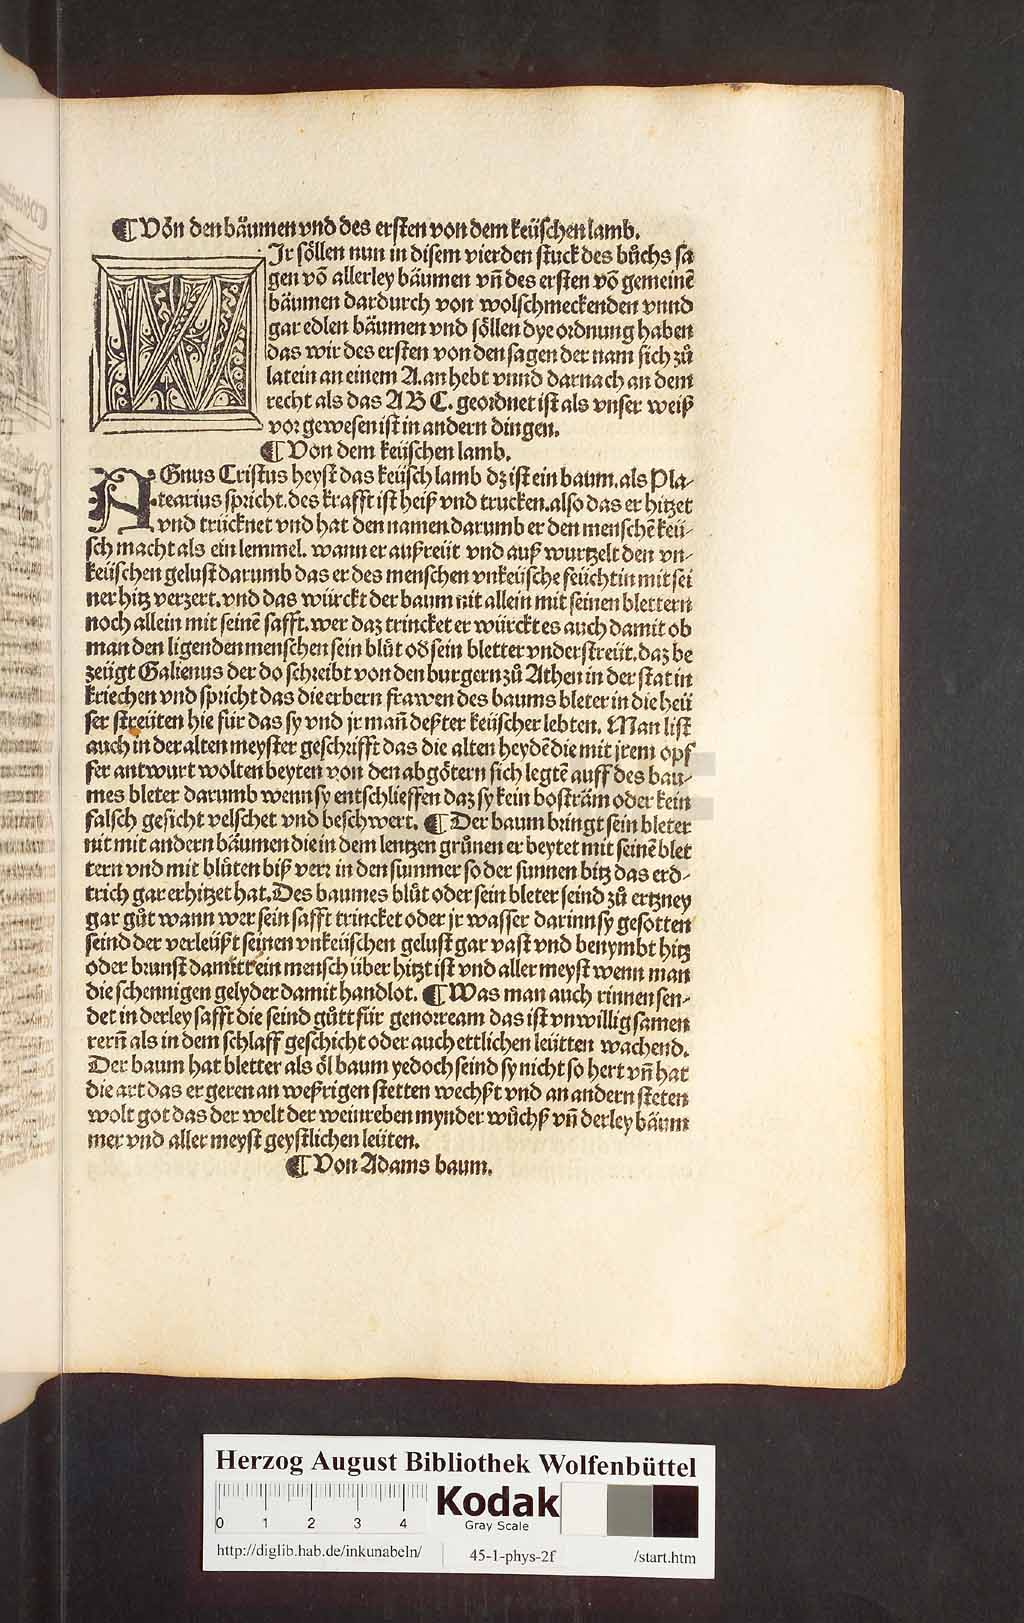 ¶ Võn den bäumen vnd des ersten von dem keüschen lamb.
WIr söllen nun in disem vierden stuck des bůchs sa
gen võ allerley bäumen vñ des ersten võ gemeinẽ
bäumen dardurch von wolschmeckenden vnnd
gar edlen bäumen vnd söllen dye ordnung haben
das wir des ersten von den sagen der nam sich zů
latein an einem A. an hebt vnnd darnach an dem
recht als das A B C. geordnet ist als vnser weiß
vor gewesen ist in andern dingen.
¶ Von dem keüschen lamb.
AGnus Cristus heyst das keüsch lamb dz ist ein baum. als Pla-
tearius spricht. des krafft ist heiß vnd trucken. also das er hitzet
vnd trücknet vnd hat den namen darumb er den menschẽ keü-
sch macht als ein lemmel. wann er außreüt vnd auß wurtzelt den vn-
keüschen gelust darumb das er des menschen vnkeüsche feüchtin mit sei
ner hitz verzert. vnd das würckt der baum nit allein mit seinen blettern
noch allein mit seinẽ safft. wer daz trincket er würckt es auch damit ob
man den ligenden menschen sein blůt od sein bletter vnderstreüt. daz be
zeügt Galienus der do schreibt von den burgern zů Athen in der stat in
kriechen vnd spricht das die erbern frawen des baums bleter in die heü
ser streüten hie für das sy vnd jr mañ deßter keüscher lebten. Man list
auch in der alten meyster geschrifft das die alten heydẽ die mit jrem opf
fer antwurt wolten beyten von den abgötern sich legtẽ auff des bau-
mes bleter darumb wenn sy entschlieffen daz sy kein bosträm oder kein
falsch gesicht velschet vnd beschwert. ¶ Der baum bringt sein bleter
nit mit andern bäumen die in dem lentzen grůnen er beytet mit seinẽ blet
tern vnd mit blůten biß verr in den summer so der sunnen hitz das erd-
trich gar erhitzet hat. Des baumes blůt oder sein bleter seind zů ertzney
gar gůt wann wer sein safft trincket oder jr wasser darinn sy gesotten
seind der verleüßt seinen vnkeüschen gelust gar vast vnd benymbt hitz
oder brunst damitt ein mensch über hitzt ist vnd aller meyst wenn man
die schennigen gelyder damit handlot. ¶ Was man auch rinnen sen-
det in derley safft die seind gůtt für genorream das ist vnwillig samen
rerñ als in dem schlaff geschicht oder auch ettlichen leütten wachend.
Der baum hat bletter als öl baum yedoch seind sy nicht so hert vñ hat
die art das er geren an weßrigen stetten wechßt vnd an andern steten
wolt got das der welt der weinreben mynder wůchß vñ derley bäum
mer vnd aller meyst geystlichen leüten.
¶ Von Adams baum.
Herzog August Bibliothek Wolfenbüttel
0 1 2 3 4
Kodak
Gray Scale
http://diglib.hab.de/inkunabeln/
45-1-phys-2f
/start.htm